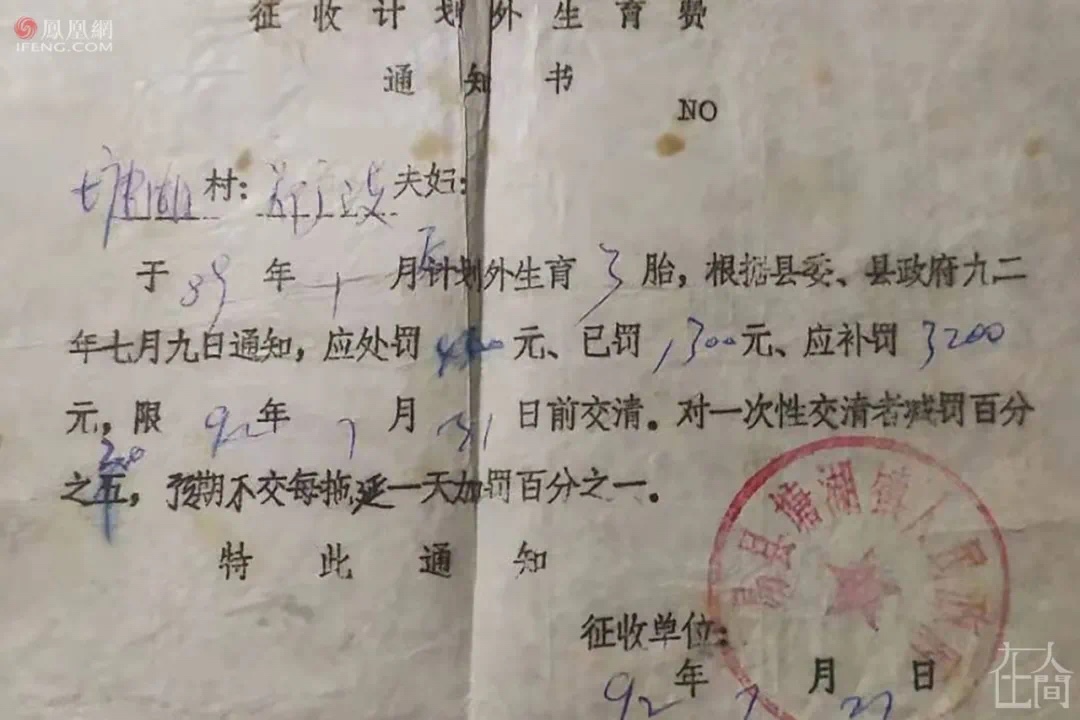 鳳凰網
IFENG.COM
征收计划外生育费
通知书
NO
塘湖村: 夫妇:
于89年 月计划外生育3胎，根据县委、县政府九二
年七月九日通知，应处罚 元、已罚1300元、应补罚3200
元，限92年7月31日前交清。对一次性交清者减罚百分
之 ，预期不交每拖延一天加罚百分之一。
特此通知
易县塘湖镇人民政府
征收单位:
92年7月27日
在人间